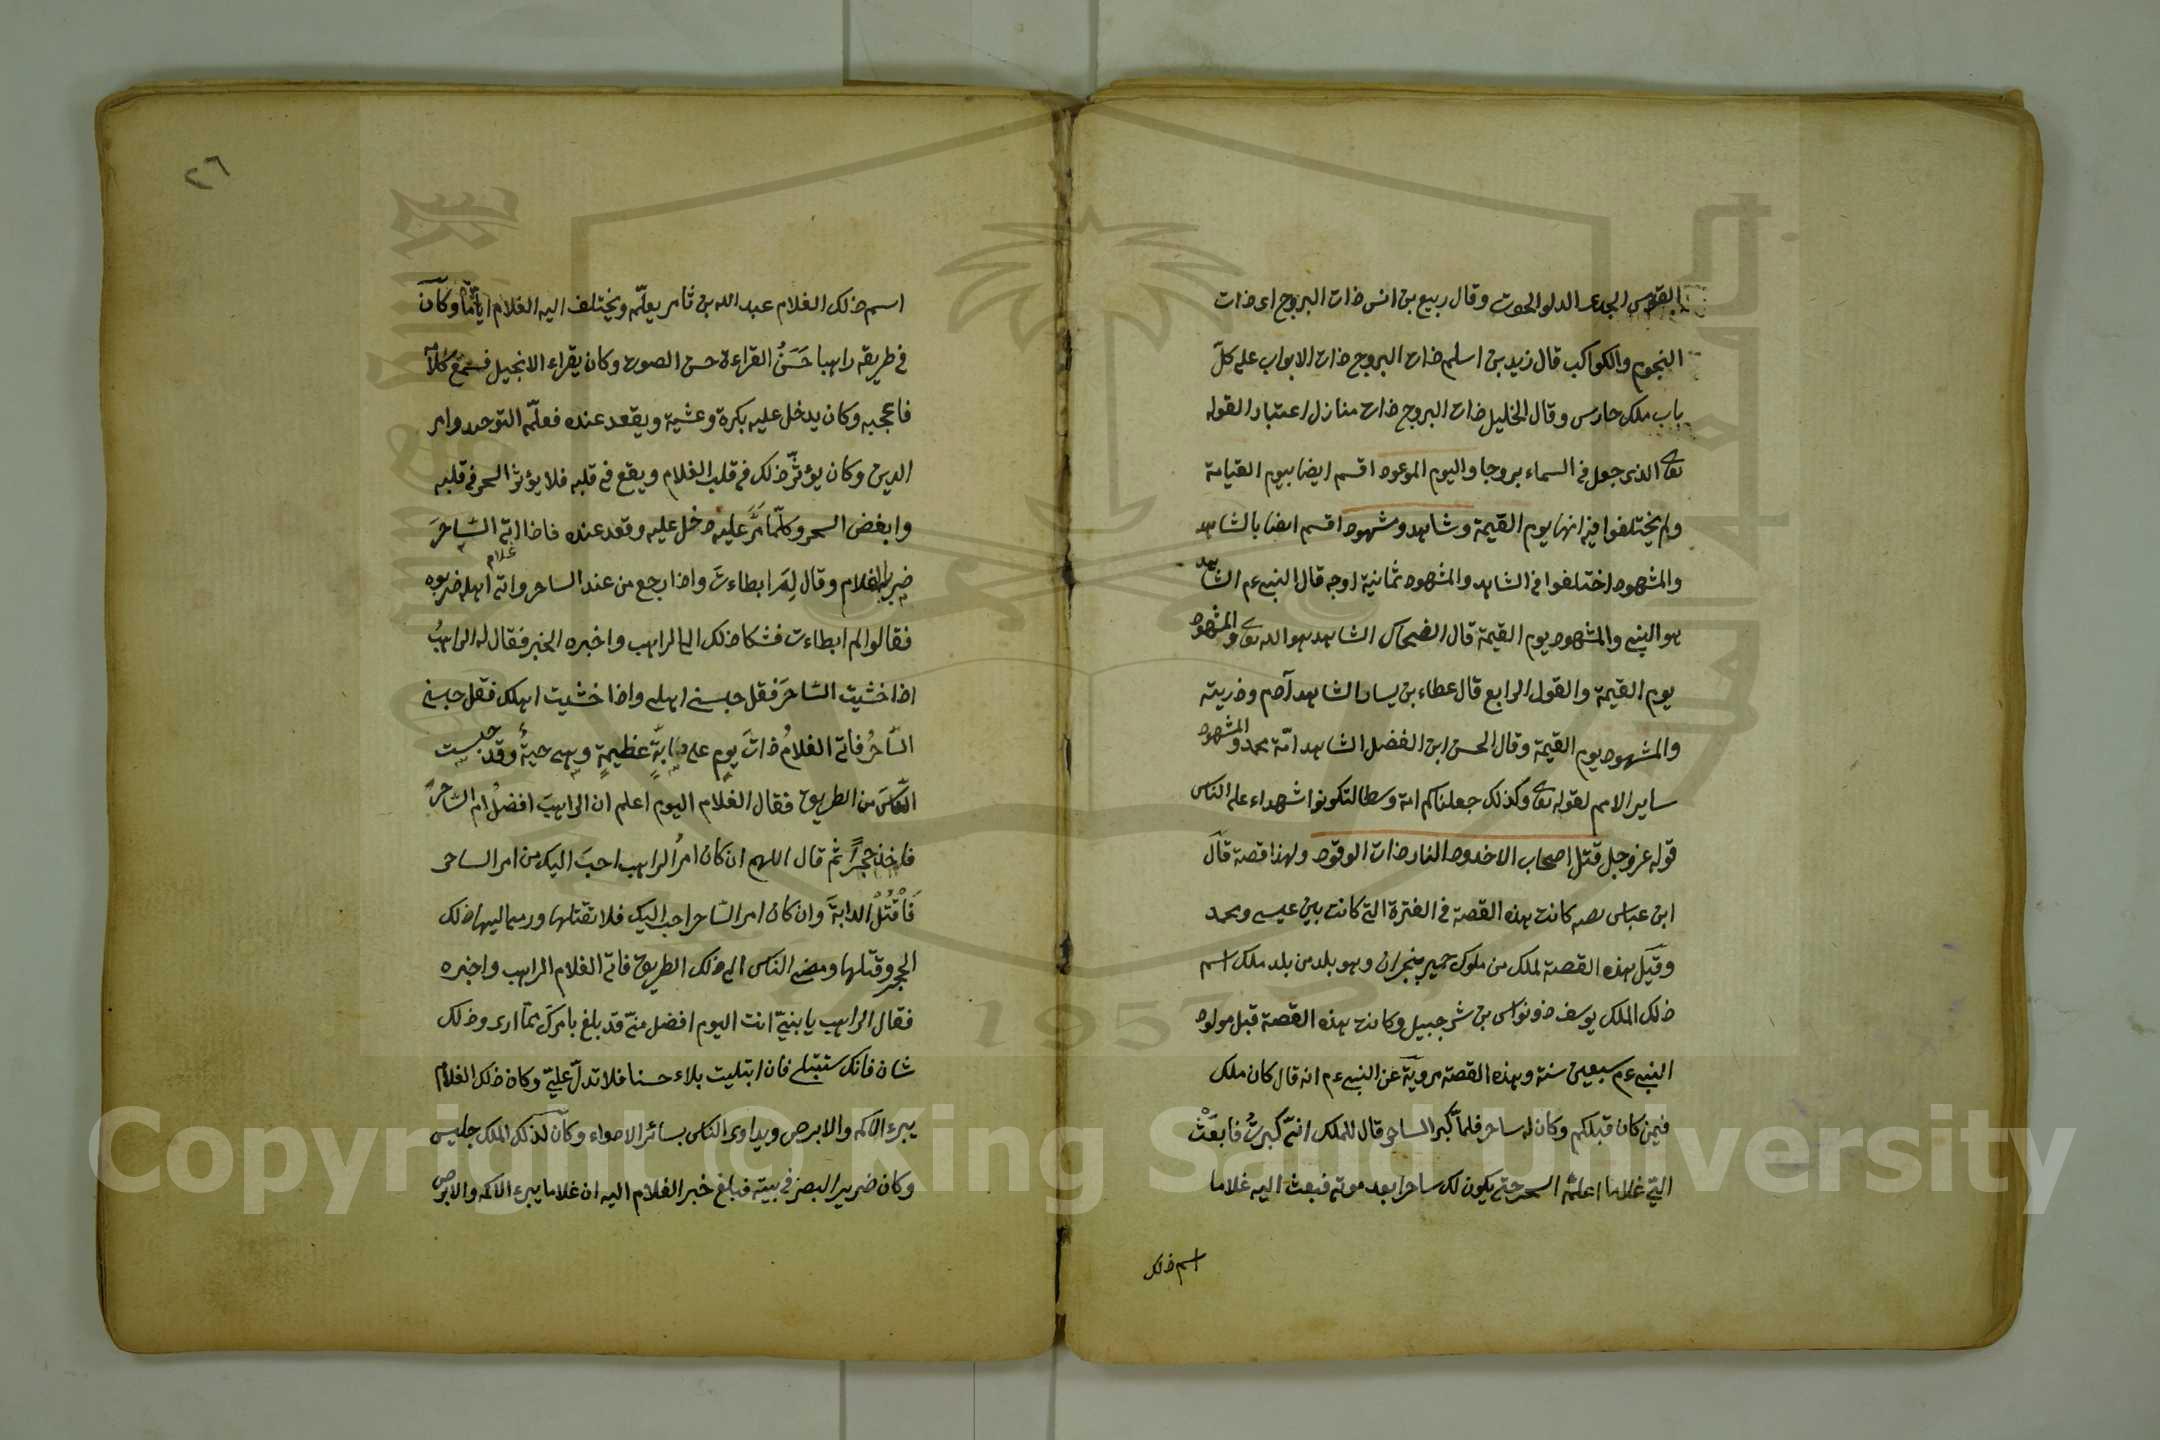 القوس الجدى الدلو الحوت وقال ربيع بن انس ذات البروج اى ذات
النجوم والكواكب قال زيد بن اسلم ذات البروج ذات الابواب على كلّ
باب ملك حارس وقال الخليل ذات البروج ذات منازل اعتبارا لقوله
تعالى الذى جعل فى السماء بروجا واليوم الموعود اقسم ايضا بيوم القيامة
ولم يختلفوا فيه انها يوم القيمة وشاهد ومشهود اقسم ايضا بالشاهد
والمشهود اختلفوا فى الشاهد والمشهود ثمانية اوجه قال النبى عم الشاهد
هو النبى والمشهود يوم القيمة قال الضحاك الشاهد هو الله تعالى والمشهود
يوم القيمة والقول الرابع قال عطاء بن يسار الشاهد آدم وذريته
والمشهود يوم القيمة وقال الحسن ابن الفضل الشاهد امّة محمد والمشهود
ساير الامم لقوله تعالى وكذلك جعلناكم امة وسطا لتكونوا شهداء على الناس
قوله عز وجل قتل اصحاب الاخدود النار ذات الوقود ولهذا قصة قال
ابن عباس رضه كانت هذه القصة فى الفترة التى كانت بين عيسى ومحمد
وقيل هذه القصة لملك من ملوك حمير بنجران وهو بلد من بلد ملك اسم
ذلك الملك يوسف ذو نواس بن شرحبيل وكانت هذه القصة قبل مولود
النبى عم سبعين سنة وهذه القصة مرويّة عن النبى عم انه قال كان ملك
فيمن كان قبلكم وكان له ساحر فلمّا كبر الساحر قال للملك انى كبرت فابعث
الىّ غلاما اعلمه السحر حتى يكون لك ساحرا بعد موته فبعث اليه غلاما
اسم ذلك
٢٦
اسم ذلك الغلام عبد الله بن ثامر يعلّمه ويختلف اليه الغلام ايّاما وكان
فى طريقه راهبا حَسَنُ القراءة حسن الصوت وكان يقراء الانجيل فسمع كلاما
فاعجبه وكان يدخل عليه بكرة وعشية ويقعد عنده فعلّمه التوحيد وامر
الدين وكان يؤثّر ذلك فى قلب الغلام ويقع فى قلبه فلا يؤثر السحر فى قلبه
وابغض السحر وكلّما مَرَّ عليه دخل عليه وقعد عنده فاذا اتى الساحرَ
ضرب الغلام وقال لِمَ ابطاءتَ واذا رجع من عند الساحر واتى غلام اهله ضربوه
فقالوا لم ابطاءت فشكا ذلك الى الراهب واخبره الخبر فقال له الراهبُ
اذا خشيت الساحرَ فقل حبسنى اهلى واذا خشيت اهلك فقل حبسنى
الساحرُ فاتى الغلامُ ذاتَ يوم على دابّةٍ عظيمةٍ وهى حيةٌ وقد حبست
الناسَ من الطريق فقال الغلام اليوم اعلم ان الراهبَ افضلُ ام الساحرُ
فاخذ حجراً ثم قال اللهم ان كان امرُ الراهب احبَ اليك من امر الساحر
فَاقْتُلْ الدابةَ وان كان امر الساحر احب اليك فلا تقتلها ورمى اليها ذلك
الحجر وقتلها ومضى الناس الى ذلك الطريق فاتى الغلام الراهب واخبره
فقال الراهب يا بنىّ انت اليوم افضل منّى قد بلغ بامرك ممّا ارى وذلك
شان فانك ستبتلى فان ابتليت بلاء حسنا فلا تدلّ علىّ وكان ذلك الغلام
يبرء الاكمه والابرص ويداوى الناس بسائر الادواء وكان لذلك الملك جليس
وكان ضرير البصر فى بيته فبلغ خبر الغلام اليه ان غلاما يبرء الاكمه والابرص
Copyright © King Saud University
1957